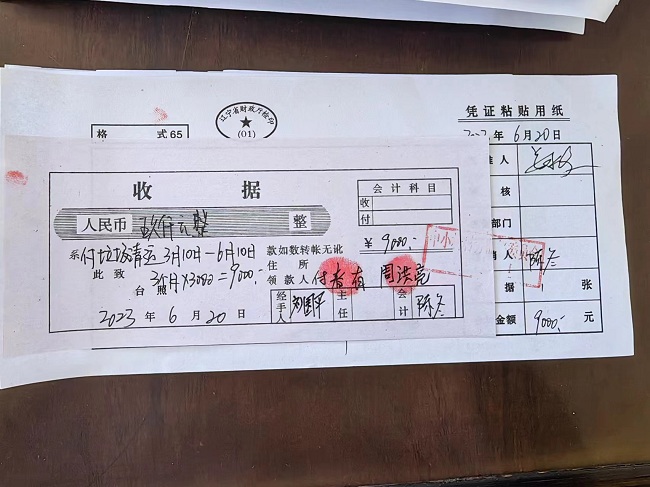 凭证粘贴用纸
2023年6月20日
辽宁省财政厅检印
(01)
格式65
收据
会计科目
收
付
人民币 玖仟元整 整
¥ 9000.-
系 付垃圾清运 3月10日-6月10日 款如数转帐无讹
此致 3个月×3000=9000.- 住所
台照 领款人 付春有 周洪亮
2023年6月20日
经手人
主任
会计 陈冬
准人
核
部门
销人 陈冬
据 张
金额 9000.- 元